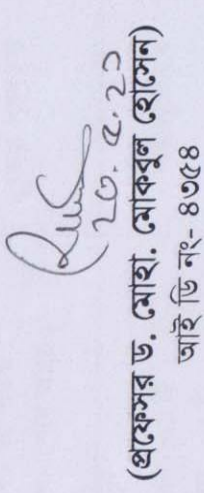 ২৩.৫.২১
(প্রফেসর ড. মোহা. মোকবুল হোসেন)
আই ডি নং- ৪৩৫৪